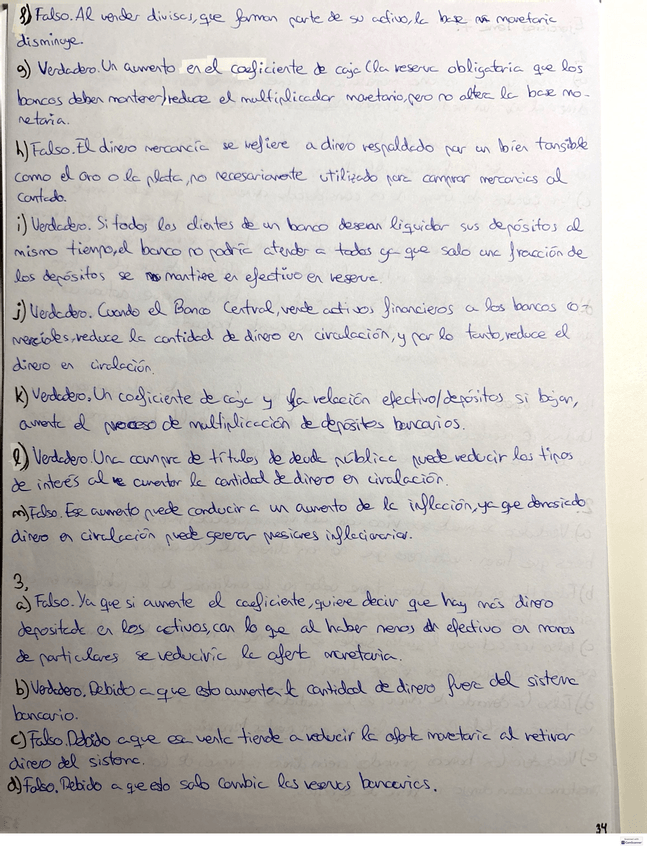 f) Falso. Al vender divisas, que forman parte de su activo, la base monetaria
disminuye.
g) Verdadero. Un aumento en el coeficiente de caja (la reserva obligatoria que los
bancos deben mantener) reduce el multiplicador monetario, pero no altera la base mo-
netaria.
h) Falso. El dinero mercancía se refiere a dinero respaldado por un bien tangible
como el oro o la plata, no necesariamente utilizado para comprar mercancías al
contado.
i) Verdadero. Si todos los clientes de un banco desean liquidar sus depósitos al
mismo tiempo, el banco no podría atender a todos ya que solo una fracción de
los depósitos se mantiene en efectivo en reserva.
j) Verdadero. Cuando el Banco Central, vende activos financieros a los bancos co-
merciales, reduce la cantidad de dinero en circulación, y por lo tanto, reduce el
dinero en circulación.
k) Verdadero. Un coeficiente de caja y la relación efectivo/depósitos si bajan,
aumenta el proceso de multiplicación de depósitos bancarios.
l) Verdadero. Una compra de títulos de deuda pública puede reducir los tipos
de interés al aumentar la cantidad de dinero en circulación.
m) Falso. Ese aumento puede conducir a un aumento de la inflación, ya que demasiado
dinero en circulación puede generar presiones inflacionarias.
3.
a) Falso. Ya que si aumenta el coeficiente, quiere decir que hay más dinero
depositado en los activos, con lo que al haber menos efectivo en manos
de particulares se reduciría la oferta monetaria.
b) Verdadero. Debido a que esto aumenta la cantidad de dinero fuera del sistema
bancario.
c) Falso. Debido a que esa venta tiende a reducir la oferta monetaria al retirar
dinero del sistema.
d) Falso. Debido a que esto solo cambia las reservas bancarias.
34